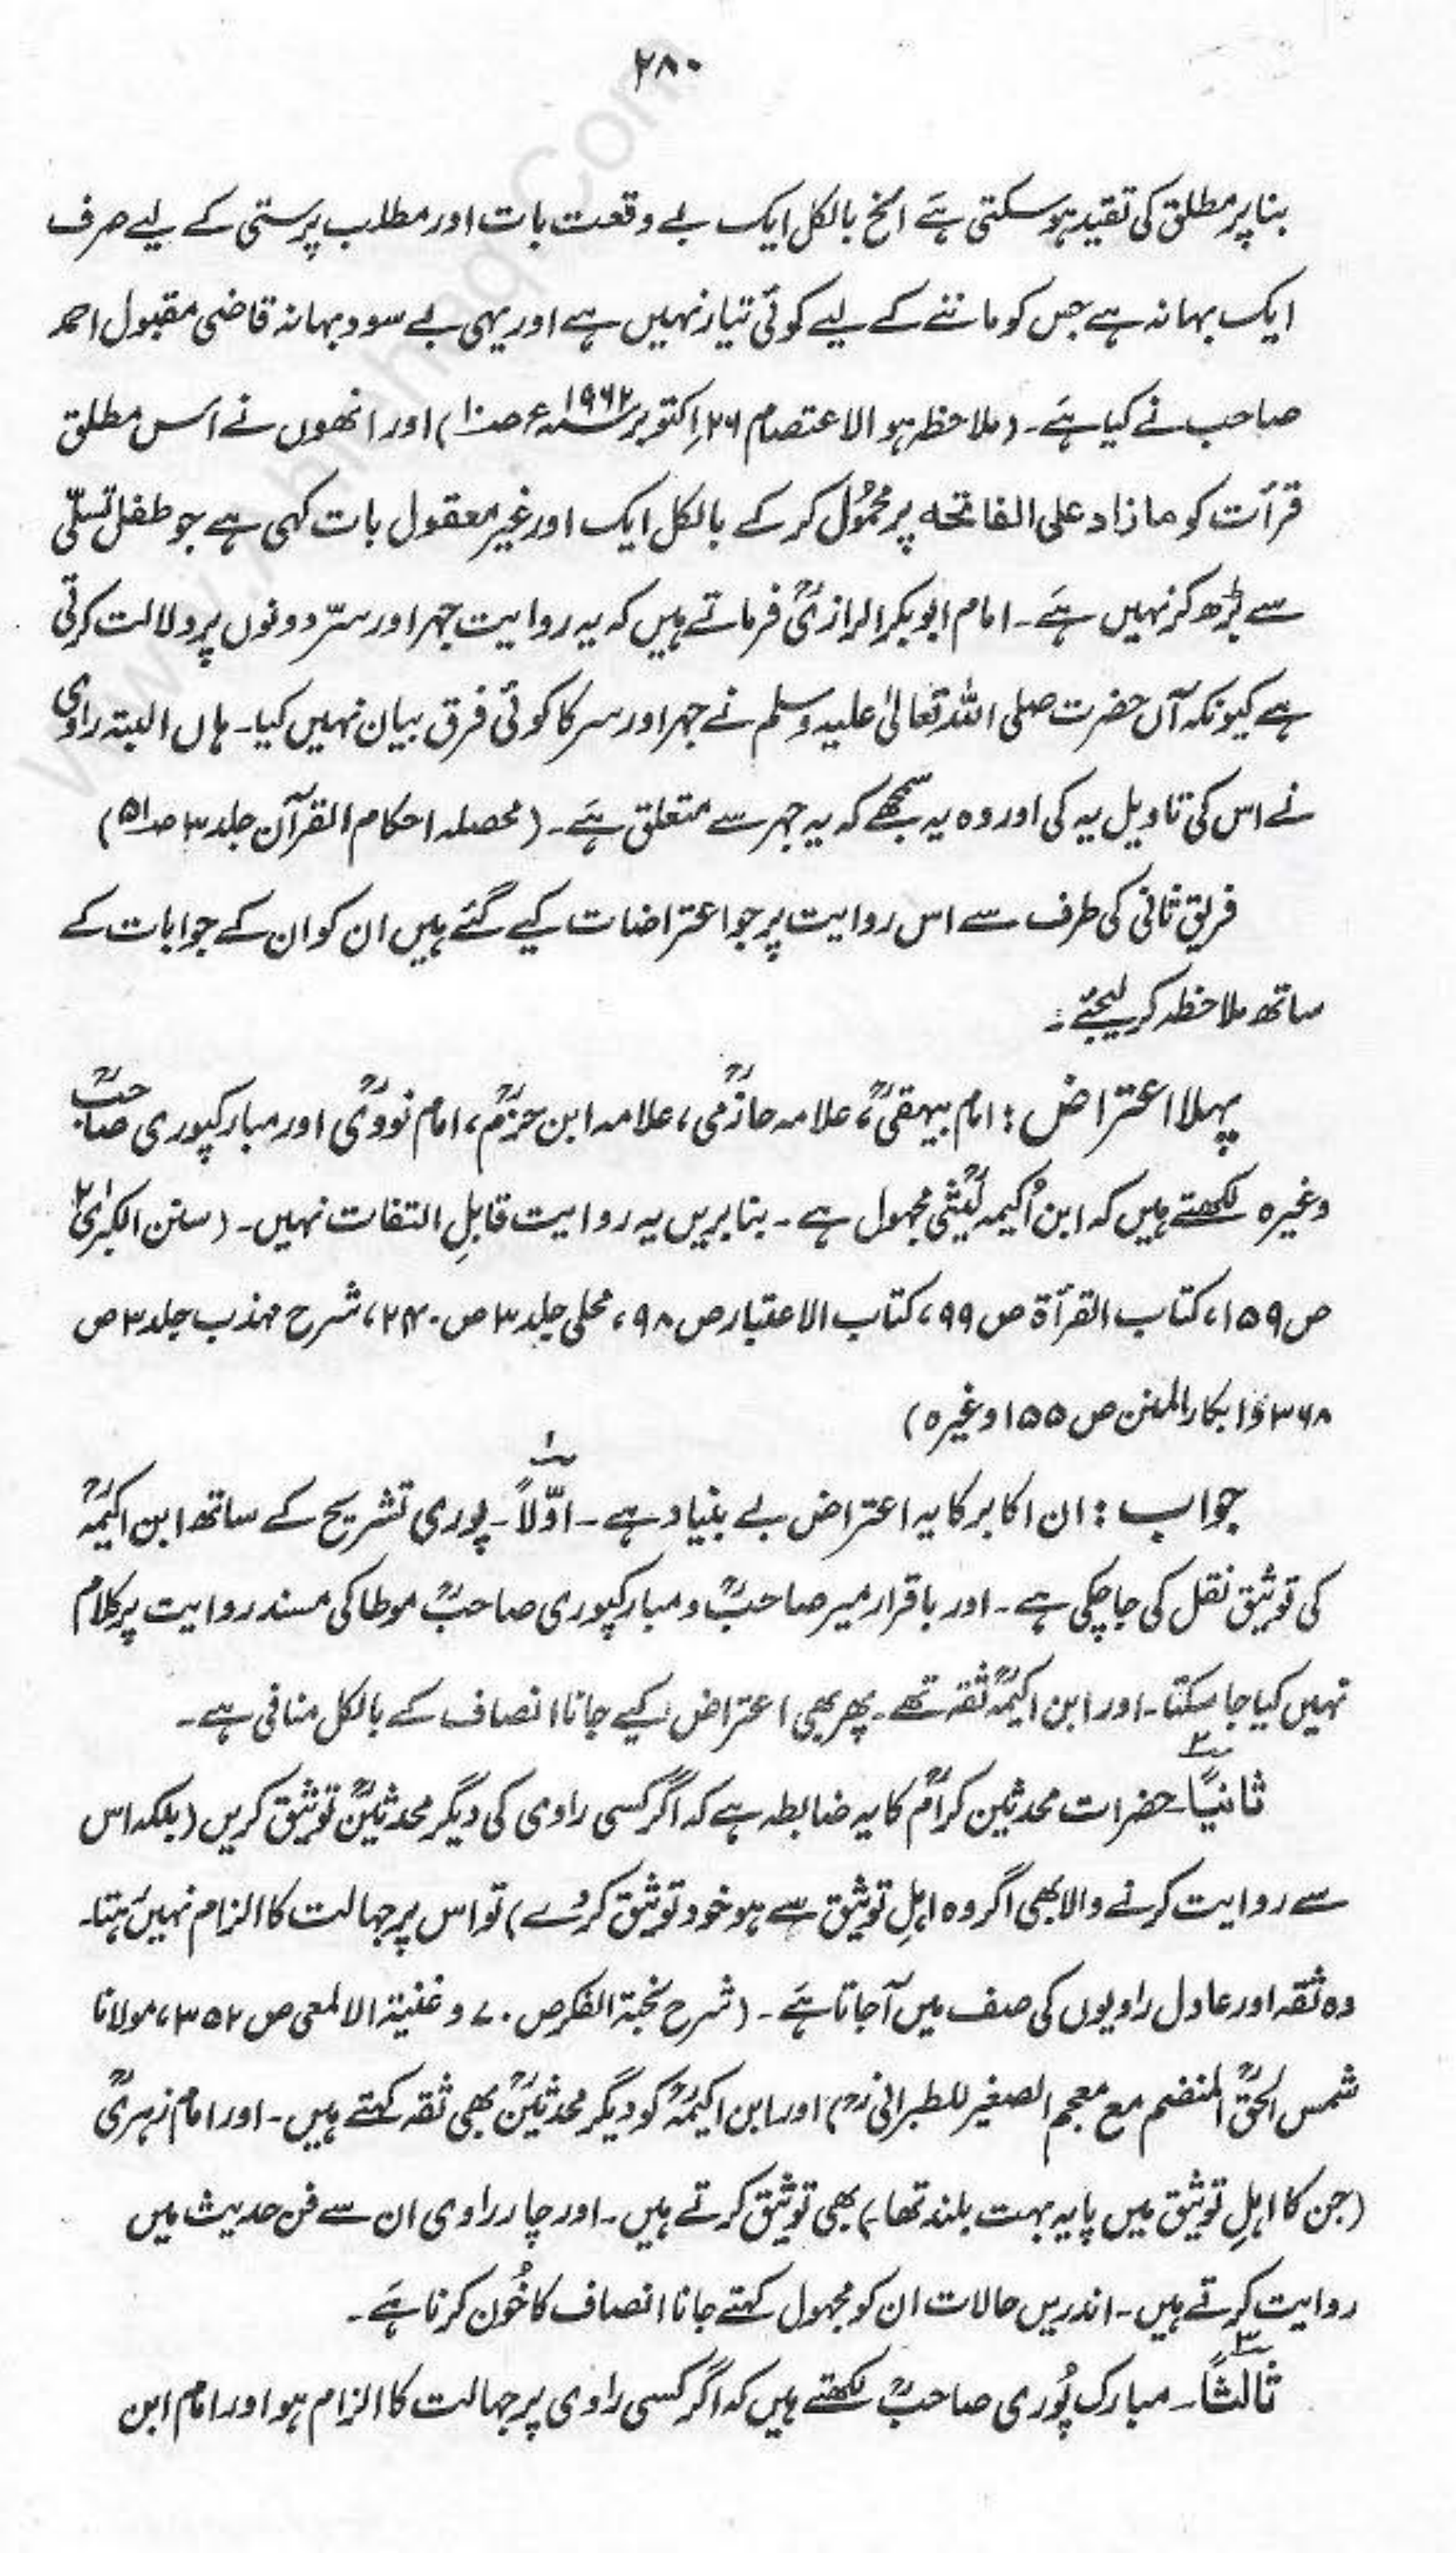 ۲۸۰
بنا پر مطلق کی تقید ہو سکتی ہے الخ بالکل ایک بے وقعت بات اور مطلب پرستی کے لیے صرف
ایک بہانہ ہے جس کو ماننے کے لیے کوئی تیار نہیں ہے اور یہی بے سود بہانہ قاضی مقبول احمد
صاحب نے کیا ہے۔ (ملاحظہ ہو الاعتصام ۲۶ اکتوبر ۱۹۶۲ء ص۱۰) اور انھوں نے اس مطلق
قرأت کو ما زاد علی الفاتحہ پر محمول کر کے بالکل ایک اور غیر معقول بات کہی ہے جو طفل تسلّی
سے بڑھ کر نہیں ہے۔ امام ابوبکر الرازیؒ فرماتے ہیں کہ یہ روایت جہر اور سرّ دونوں پر دلالت کرتی
ہے کیونکہ آں حضرت صلی اللہ تعالیٰ علیہ وسلم نے جہر اور سر کا کوئی فرق بیان نہیں کیا۔ ہاں البتہ راوی
نے اس کی تاویل یہ کی اور وہ یہ سمجھے کہ یہ جہر سے متعلق ہے۔ (محصلہ احکام القرآن جلد ۳ ص۵۱)
فریق ثانی کی طرف سے اس روایت پر جو اعتراضات کیے گئے ہیں ان کو ان کے جوابات کے
ساتھ ملاحظہ کر لیجئے۔
پہلا اعتراض : امام بیہقیؒ، علامہ حازمیؒ، علامہ ابن حزمؒ، امام نوویؒ اور مبارکپوری صاحبؒ
وغیرہ لکھتے ہیں کہ ابن اُکیمہ لَیْثیؒ مجہول ہے۔ بنا بریں یہ روایت قابلِ التفات نہیں۔ (سنن الکبریٰ ۲
ص ۱۵۹، کتاب القرأۃ ص ۹۹، کتاب الاعتبار ص ۹۸، محلی جلد ۳ ص ۲۴۰، شرح مہذب جلد ۳ ص
۳۶۸ و ابکار المنن ص ۱۵۵ وغیرہ)
جواب : ان اکابر کا یہ اعتراض بے بنیاد ہے۔ اوّلاً ۱۔ پوری تشریح کے ساتھ ابن اکیمہؒ
کی توثیق نقل کی جا چکی ہے۔ اور باقرار میر صاحبؒ و مبارکپوری صاحبؒ موطا کی مسند روایت پر کلام
نہیں کیا جا سکتا۔ اور ابن اکیمہؒ ثقہ تھے۔ پھر بھی اعتراض کیے جانا انصاف کے بالکل منافی ہے۔
ثانیًا ۲۔ حضرات محدثین کرامؒ کا یہ ضابطہ ہے کہ اگر کسی راوی کی دیگر محدثینؒ توثیق کریں (بلکہ اس
سے روایت کرنے والا بھی اگر وہ اہلِ توثیق سے ہو خود توثیق کر دے) تو اس پر جہالت کا الزام نہیں رہتا۔
وہ ثقہ اور عادل راویوں کی صف میں آجاتا ہے۔ (شرح نخبۃ الفکر ص ۷۰ و غنیۃ الالمعی ص ۳۵۲، مولانا
شمس الحقؒ المنضم مع معجم الصغیر للطبرانیؒ) اور ابن اکیمہؒ کو دیگر محدثینؒ بھی ثقہ کہتے ہیں۔ اور امام زہریؒ
(جن کا اہلِ توثیق میں پایہ بہت بلند تھا) بھی توثیق کرتے ہیں۔ اور چار راوی ان سے فن حدیث میں
روایت کرتے ہیں۔ اندریں حالات ان کو مجہول کہتے جانا انصاف کا خُون کرنا ہے۔
ثالثًا ۳۔ مبارک پُوری صاحبؒ لکھتے ہیں کہ اگر کسی راوی پر جہالت کا الزام ہو اور امام ابن